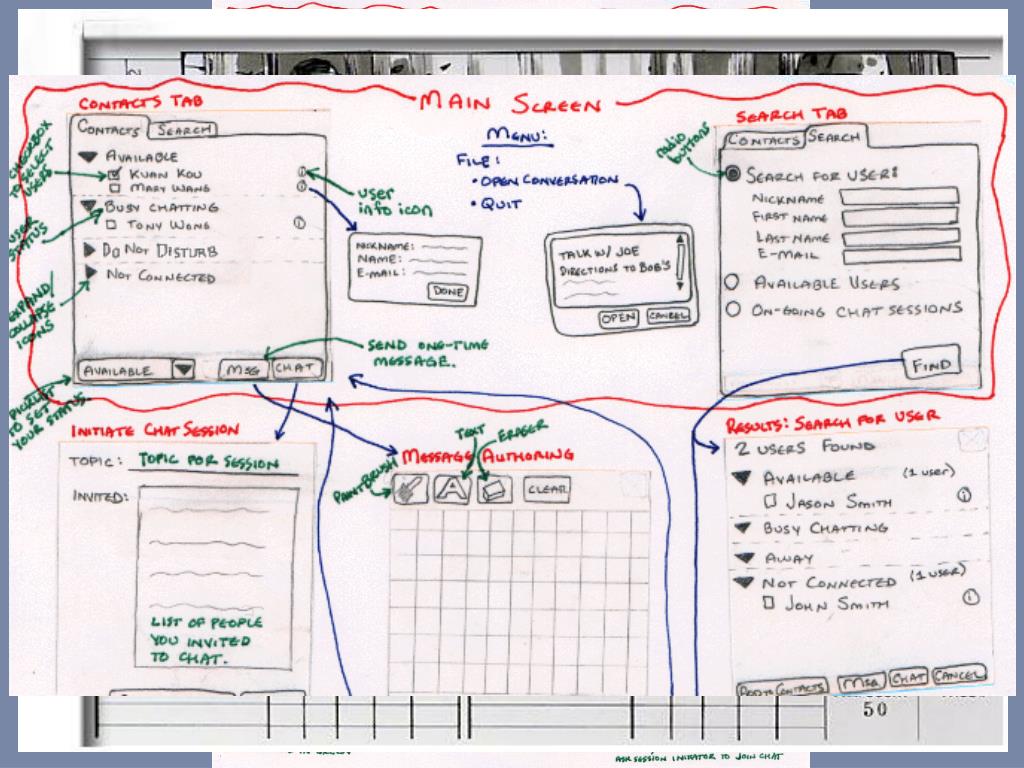 MAIN SCREEN
CONTACTS TAB
CONTACTS SEARCH
AVAILABLE
KUAN KOU
MARY WANG
BUSY CHATTING
TONY WONG
DO NOT DISTURB
NOT CONNECTED
AVAILABLE
MSG CHAT
CHECKBOX
TO SELECT
USERS
USER
STATUS
EXPAND/
COLLAPSE
ICONS
PICKLIST
TO SET
YOUR STATUS.
user
info icon
NICKNAME:
NAME:
E-MAIL:
DONE
SEND ONE-TIME
MESSAGE.
MENU:
FILE:
• OPEN CONVERSATION
• QUIT
TALK W/ JOE
DIRECTIONS TO BOB'S
OPEN CANCEL
SEARCH TAB
radio
buttons
CONTACTS SEARCH
SEARCH FOR USER:
NICKNAME
FIRST NAME
LAST NAME
E-MAIL
AVAILABLE USERS
ON-GOING CHAT SESSIONS
FIND
INITIATE CHAT SESSION
TOPIC: TOPIC FOR SESSION
INVITED:
LIST OF PEOPLE
YOU INVITED
TO CHAT.
MESSAGE AUTHORING
PAINTBRUSH
TEXT
ERASER
A
CLEAR
RESULTS: SEARCH FOR USER
2 USERS FOUND
AVAILABLE (1 USER)
JASON SMITH
BUSY CHATTING
AWAY
NOT CONNECTED (1 USER)
JOHN SMITH
ADD TO CONTACTS MSG CHAT CANCEL
50
ASK SESSION INITIATOR TO JOIN CHAT